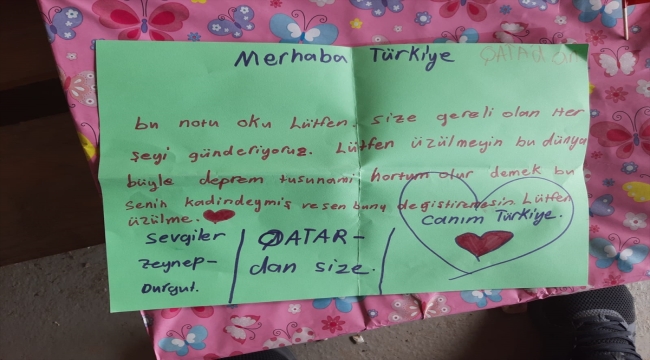 Merhaba Türkiye QATAR dan
bu notu oku Lütfen. size gerekli olan Her
şeyi günderiyoruz. Lütfen üzülmeyin bu dünya
böyle deprem tusunami hortum olur demek bu
Senin kadindeymiş ve sen bunu degistiremesin Lütfen
üzülme.
canım Türkiye.
Sevgiler
Zeynep-
Durgut.
QATAR-
dan size.